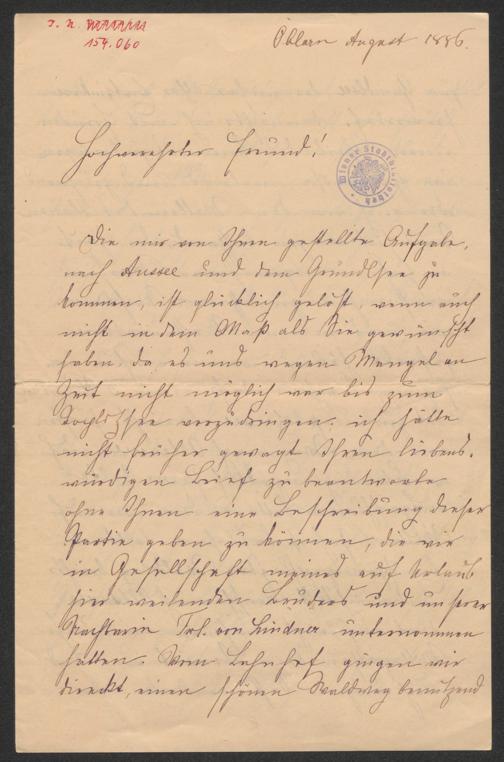 I. N.
159.060
Öblarn August 1886.
Hochverehrter Freund!
Wiener Stadtbibliothek
Die mir von Ihnen gestellte Aufgabe,
nach Aussee und dem Grundlsee zu
kommen, ist glücklich gelöst, wenn auch
nicht in dem Maß als Sie gewünscht
haben, da es uns wegen Mangel an
Zeit nicht möglich war bis zum
Toplitzsee vorzudringen. ich hätte
nicht früher gewagt Ihren liebens-
würdigen Brief zu beantworte
ohne Ihnen eine Beschreibung dieser
Partie geben zu können, die wir
in Gesellschaft meines auf Urlaub
hier weilenden Bruders und unserer
Nachbarin Frl. von Lindner unternommen
hatten. Vom Bahnhof gingen wir
direkt, einen schönen Waldweg benützend